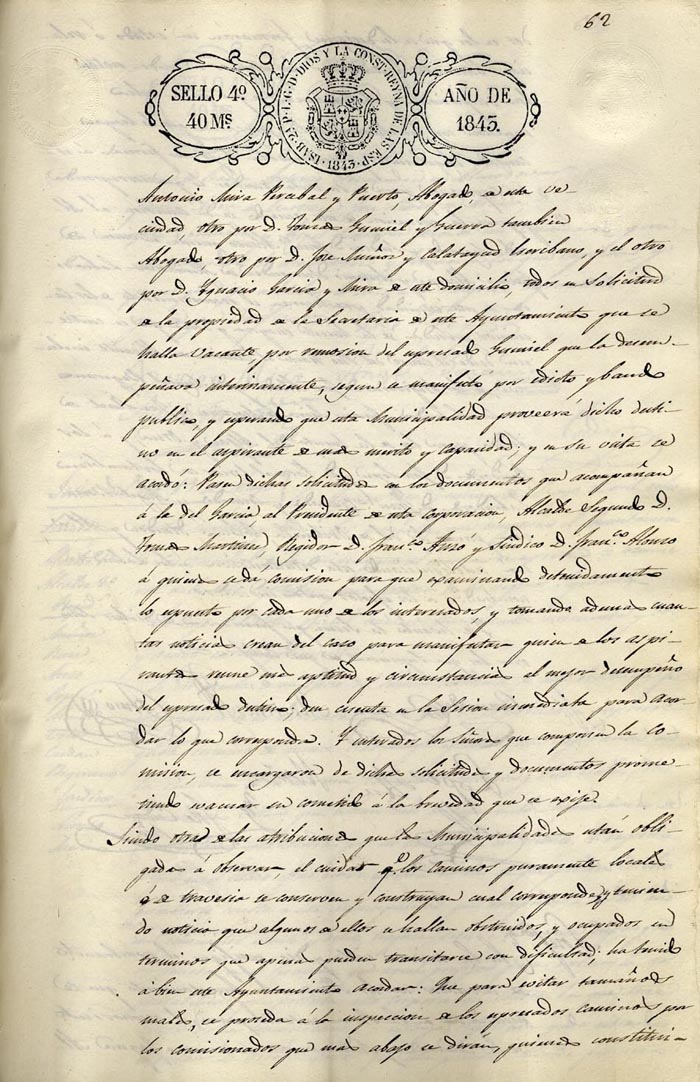 62
SELLO 4º
40 Ms.
ISAB. 2ª P. L. G. D. DIOS Y LA CONST. REYNA DE LAS ESP. 1843.
AÑO DE
1843.
Antonio Mira Percebal y Puerto Abogado, de este ve-
cindad otro por D. Tomas Gumiel y Guerra tambien
Abogado, otro por D. Jose Muñoz y Calatayud Escribano, y el otro
por D. Ygnacio Garcia y Mira de este domicilio, todos en solicitud
de la propiedad de la Secretaria de este Ayuntamiento que se
halla vacante, por remosion del espresado Gumiel que la desem-
peñava interinamente, segun se manifestó por edicto y bando
publico, y esperando que esta Municipalidad proveerá dicho desti-
no en el aspirante de mas merito y capacidad; y en su vista se
acordó: Pasen dichas solicitudes con los documentos que acompañan
á la del Garcia, al Presidente de esta corporacion, Alcalde Segundo D.
Tomas Martinez, Regidor D. Franco. y Sindico D. Franco. Alonso
á quienes se dé comision para que examinando detenidamente
lo espuesto por cada uno de los interesados, y tomando ademas cuan-
tas noticias crean del caso para manifestar quien de los aspi-
rantes reune mas aptitud y circunstancias al mejor desempeño
del espresado destino; den cuenta en la Sesion inmediata para acor-
dar lo que corresponda. Y enterados los Señores que componen la co-
mision, se encargaron de dichas solicitudes y documentos prome-
tiendo evacuar su cometido á la brevedad que se exije.
Siendo otra de las atribuciones que las Municipalidades están obli-
gadas á observar, el cuidar qe. los caminos puramente locales
ó de travesia se conserven y construyan cual corresponde, y tenien-
do noticia que algunos de ellos se hallan obstruidos, y ocupados en
terminos que apenas pueden transitarse con dificultad; ha tenido
á bien este Ayuntamiento acordar: Que para evitar tamaños
males, se proceda á la inspeccion de los espresados caminos por
los comisionados que mas abajo se dirán, quienes constitui-